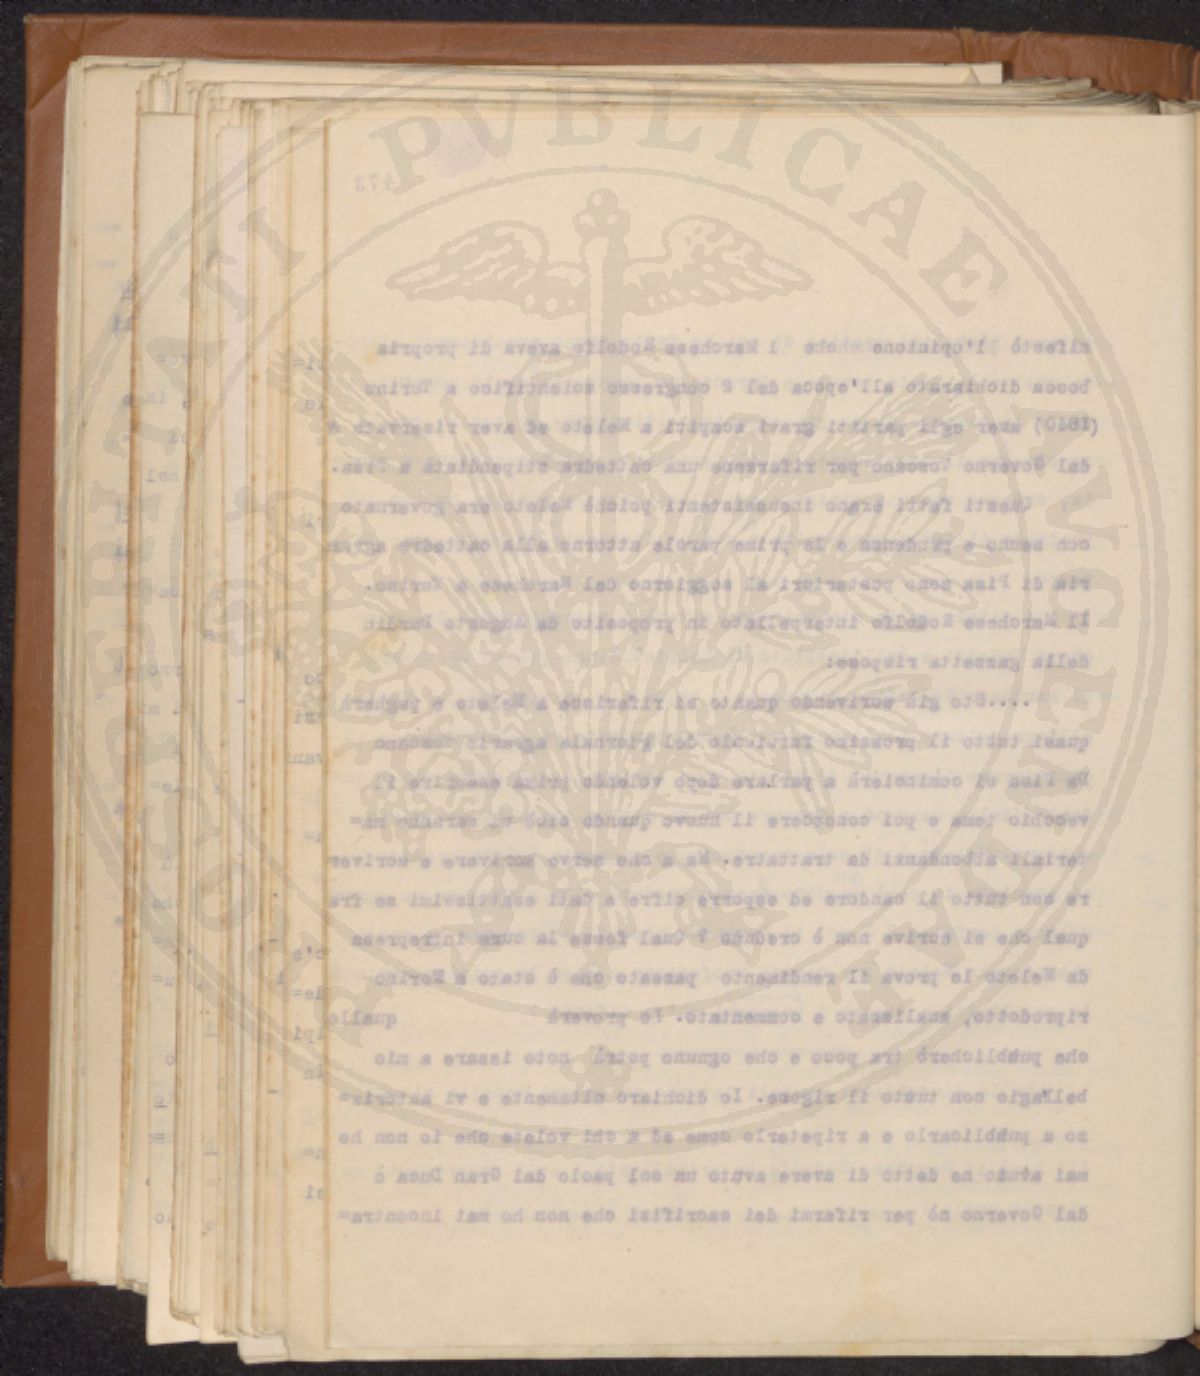 PVBLICAE
173
nifestò l'opinione che l Marchese Rodolfo aveva di propria
bocca dichiarato all'epoca del 2 congresso scientifico a Torino
(1840) aver egli patiti gravi scapiti a Meleto ed aver riservato
dal Governo Toscano per rifarsene una cattedra stipendiata a Pisa.
Questi fatti erano insussistenti poichè Meleto era governato
con senno e prudenza e le prime parole attorno alla cattedra agra=
ria di Pisa sono posteriori al soggiorno del Marchese a Torino.
Il Marchese Rodolfo interpellato in proposito da Augusto Burdin
della gazzetta rispose:
....Sto già scrivendo quanto si riferisce a Meleto e pagherà
quasi tutto il prossimo fascicolo del giornale agrario Toscano
Da Pisa si comincierà a parlare dopo volendo prima esaurire il
vecchio tema e poi conoscere il nuovo quando ciò vi saranno ma=
teriali abbondanti da trattatre. Ma a che servo scrivere e scrive=
re con tutto il candore ed esporre cifre e dati esattissimi se fra
quel che si scrive non è creduto ? Qual fosse la cura intrapresa
da Meleto lo prova il rendimento passato che è stato a Torino
riprodotto, analizzato e commentato. Io proverà quallo
che pubblicherò tra poco e che ognuno potrà
bell'agio con tutto il rigore. Io dichiaro altamente e vi autoriz=
zo a pubblicarlo e a ripeterlo come ed a chi volete che io non ho
mai avuto ne detto di avere avuto un sol paolo dal Gran Duca o
dal Governo nè per rifarmi dei sacrifizi che non ho mai incontra=